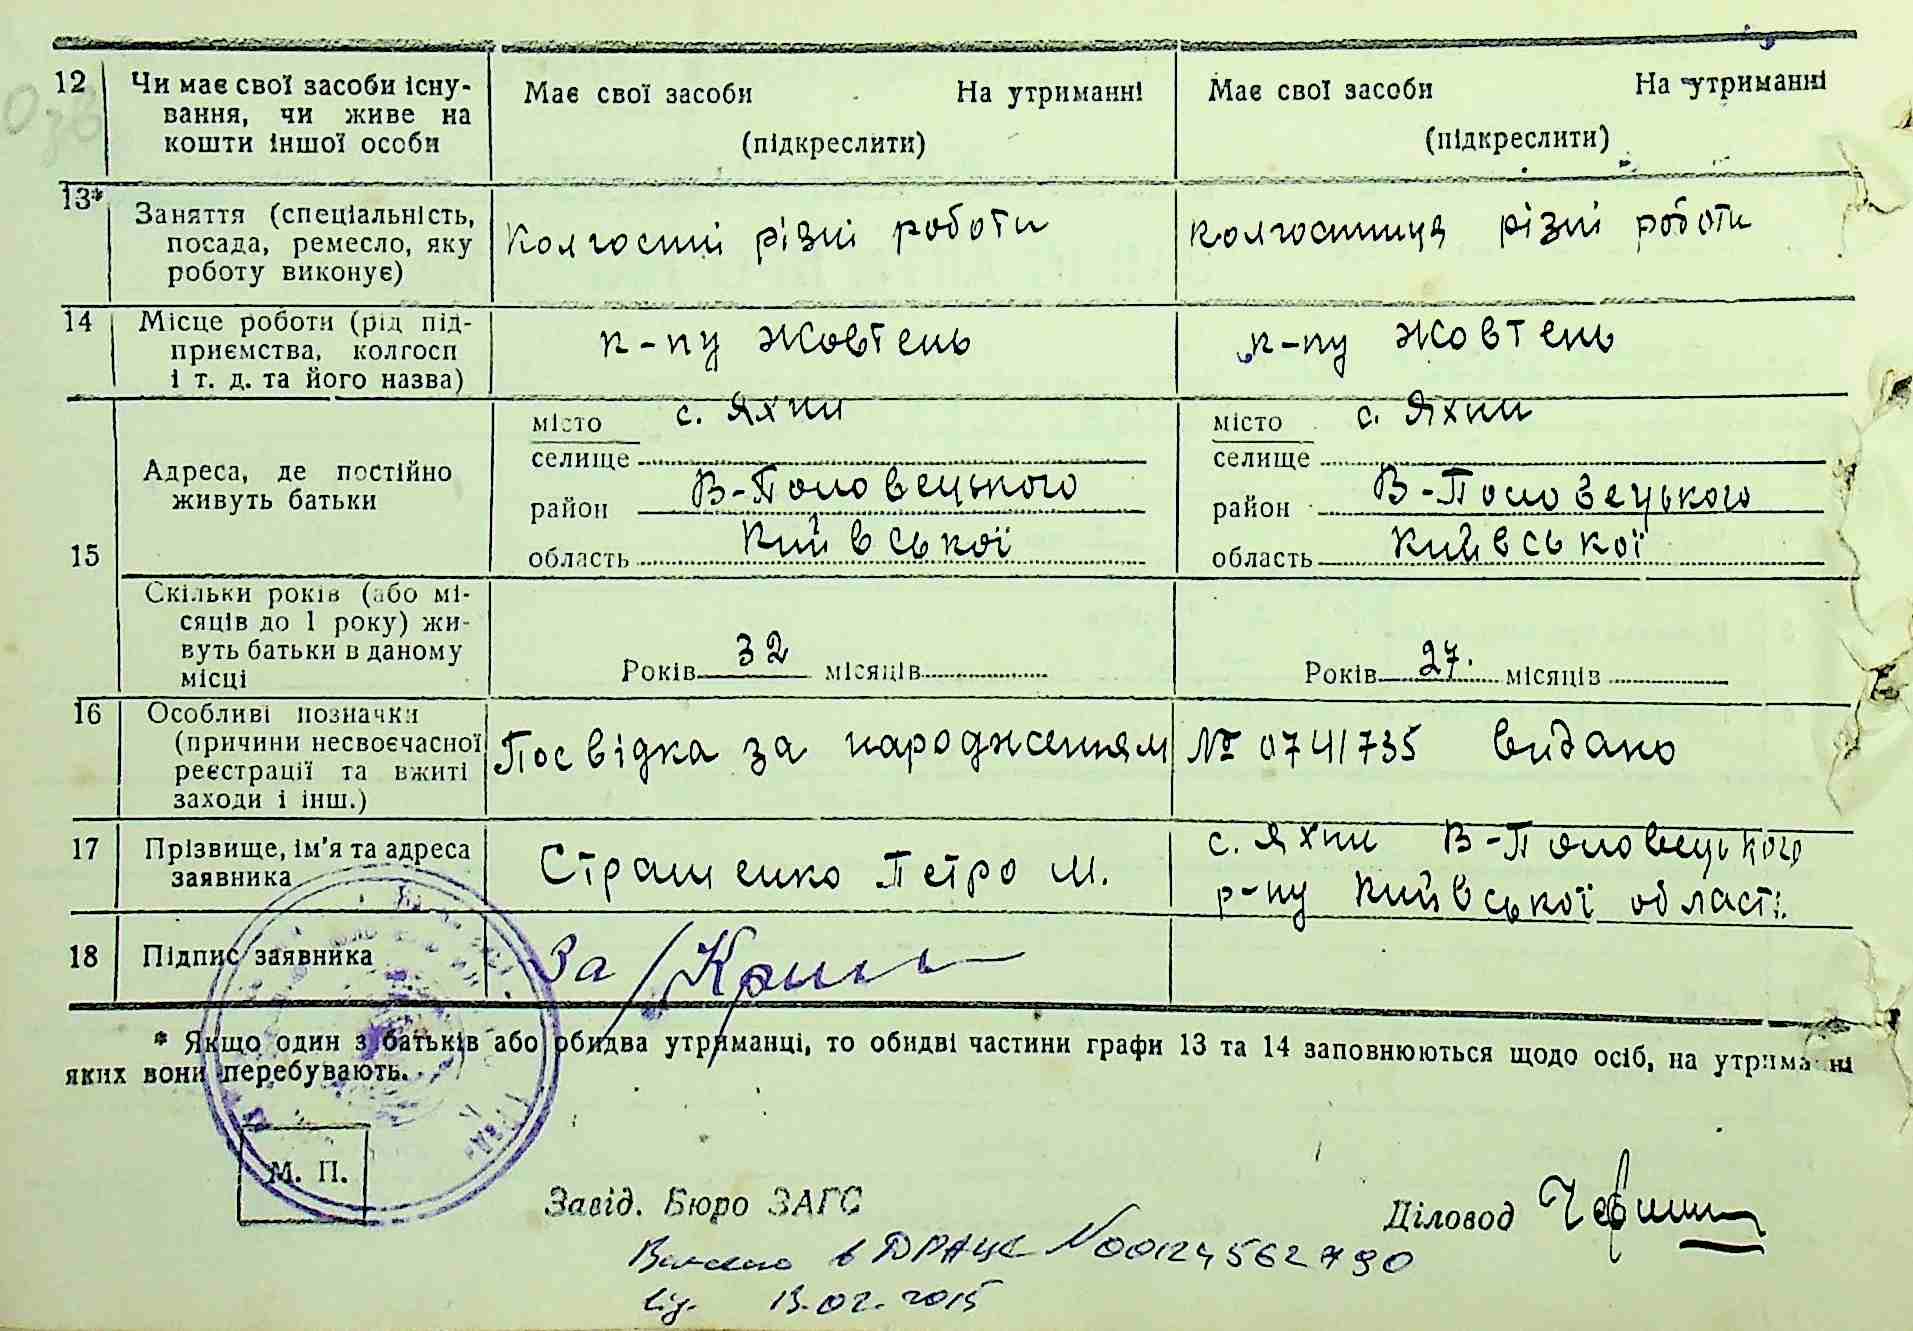 12 Чи має свої засоби існу- Має свої засоби На утриманні Має свої засоби На утриманні
вання, чи живе на
кошти іншої особи (підкреслити) (підкреслити)
13*
Заняття (спеціальність, Колгоспні різні роботи колгоспниця різні роботи
посада, ремесло, яку
роботу виконує)
14 Місце роботи (рід під- к-пу Жовтень к-пу Жовтень
приємства, колгосп
і т. д. та його назва)
місто с. Яхни місто с. Яхни
Адреса, де постійно селище селище
живуть батьки район В-Половецького район В-Половецького
15 область Київської область Київської
Скільки років (або мі-
сяців до 1 року) жи-
вуть батьки в даному Років 32 місяців Років 27. місяців
місці
16 Особливі позначки
(причини несвоєчасної Посвідка за народженням № 0741735 видано
реєстрації та вжиті
заходи і інш.)
17 Прізвище, ім'я та адреса Страшенко Петро М. с. Яхни В-Половецького
заявника р-ну Київської області.
18 Підпис заявника За /
* Якщо один з батьків або обидва утриманці, то обидві частини графи 13 та 14 заповнюються щодо осіб, на утриманні
яких вони перебувають.
М. П.
Завід. Бюро ЗАГС Діловод
Внесено в ДРАЦС N00124562790
від. 13.02.2015